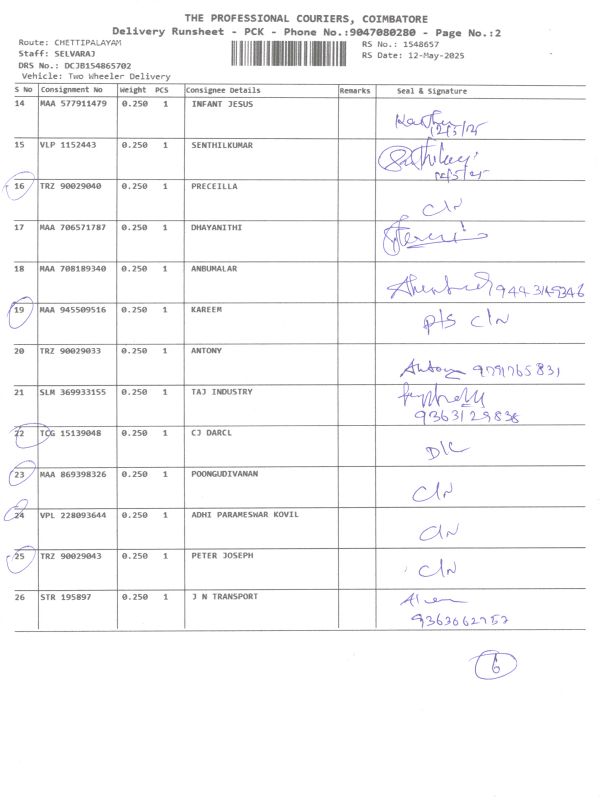 THE PROFESSIONAL COURIERS, COIMBATORE
Delivery Runsheet - PCK - Phone No.:9047080280 - Page No.:2
Route: CHETTIPALAYAM
RS No.: 1548657
Staff: SELVARAJ
RS Date: 12-May-2025
DRS No.: DCJB154865702
Vehicle: Two Wheeler Delivery
S No Consignment No Weight PCS Consignee Details Remarks Seal & Signature
14 MAA 577911479 0.250 1 INFANT JESUS
12/5/25
15 VLP 1152443 0.250 1 SENTHILKUMAR
12/5/25
16 TRZ 90029040 0.250 1 PRECEILLA
C/N
17 MAA 706571787 0.250 1 DHAYANITHI
18 MAA 708189340 0.250 1 ANBUMALAR
19 MAA 945509516 0.250 1 KAREEM
P/s C/N
20 TRZ 90029033 0.250 1 ANTONY
Antony 9791765831
21 SLM 369933155 0.250 1 TAJ INDUSTRY
9363129838
22 TCG 15139048 0.250 1 CJ DARCL
D/C
23 MAA 869398326 0.250 1 POONGUDIVANAN
C/N
24 VPL 228093644 0.250 1 ADHI PARAMESWAR KOVIL
C/N
25 TRZ 90029043 0.250 1 PETER JOSEPH
C/N
26 STR 195897 0.250 1 J N TRANSPORT
6